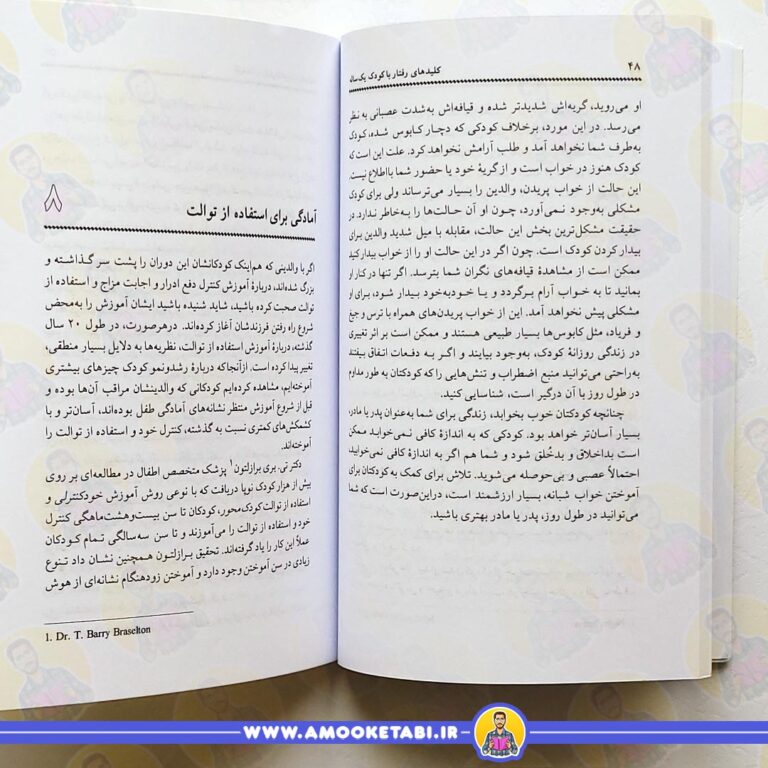 ۴۸
کلیدهای رفتار با کودک یک‌ساله
او می‌روید، گریه‌اش شدیدتر شده و قیافه‌اش به‌شدت عصبانی به نظر
می‌رسد. در این مورد، برخلاف کودکی که دچار کابوس شده، کودک
به‌طرف شما نخواهد آمد و طلب آرامش نخواهد کرد. علت این است که
کودک هنوز در خواب است و از گریهٔ خود یا حضور شما بااطلاع نیست.
این حالت از خواب پریدن، والدین را بسیار می‌ترساند ولی برای کودک
مشکلی به‌وجود نمی‌آورد، چون او آن حالت‌ها را به‌خاطر ندارد. در
حقیقت مشکل‌ترین بخش این حالت، مقابله با میل شدید والدین برای
بیدار کردن کودک است. چون اگر در این حالت او را از خواب بیدار کنید
ممکن است از مشاهدهٔ قیافه‌های نگران شما بترسد. اگر تنها در کنار او
بمانید تا به خواب آرام برگردد و یا خودبه‌خود بیدار شود، برای او
مشکلی پیش نخواهد آمد. این از خواب پریدن‌های همراه با ترس و جیغ
و فریاد، مثل کابوس‌ها بسیار طبیعی هستند و ممکن است بر اثر تغییری
در زندگی روزانهٔ کودک، به‌وجود بیایند و اگر به دفعات اتفاق بیفتند
به‌راحتی می‌توانید منبع اضطراب و تنش‌هایی را که کودکتان به طور مداوم
در طول روز با آن درگیر است، شناسایی کنید.
چنانچه کودکتان خوب بخوابد، زندگی برای شما به‌عنوان پدر یا مادر،
بسیار آسان‌تر خواهد بود. کودکی که به اندازهٔ کافی نمی‌خوابد ممکن
است بداخلاق و بدخلق شود و شما هم اگر به اندازهٔ کافی نمی‌خوابید،
احتمالاً عصبی و بی‌حوصله می‌شوید. تلاش برای کمک به کودکتان برای
آموختن خواب شبانه، بسیار ارزشمند است، دراین‌صورت است که شما
می‌توانید در طول روز، پدر یا مادر بهتری باشید.
۸
آمادگی برای استفاده از توالت
اگر با والدینی که هم‌اینک کودکانشان این دوران را پشت سر گذاشته و
بزرگ شده‌اند، دربارهٔ آموزش کنترل دفع ادرار و اجابت مزاج و استفاده از
توالت صحبت کرده باشید، شاید شنیده باشید ایشان آموزش را به‌محض
شروع راه رفتن فرزندشان آغاز کرده‌اند. درهرصورت، در طول ۲۰ سال
گذشته، دربارهٔ آموزش استفاده از توالت، نظریه‌ها به دلایل بسیار منطقی،
تغییر پیدا کرده است. ازآنجاکه دربارهٔ رشدونمو کودک چیزهای بیشتری
آموخته‌ایم، مشاهده کرده‌ایم کودکانی که والدینشان مراقب آن‌ها بوده و
قبل از شروع آموزش منتظر نشانه‌های آمادگی طفل بوده‌اند، آسان‌تر و با
کشمکش‌های کمتری نسبت به گذشته، کنترل خود و استفاده از توالت را
آموخته‌اند.
دکتر تی. بری برازلتون۱ پزشک متخصص اطفال در مطالعه‌ای بر روی
بیش از هزار کودک نوپا دریافت که با نوعی روش آموزش خودکنترلی و
استفاده از توالت کودک‌محور، کودکان تا سن بیست‌وهشت‌ماهگی کنترل
خود و استفاده از توالت را می‌آموزند و تا سن سه‌سالگی تمام کودکان
عملاً این کار را یاد گرفته‌اند. تحقیق برازلتون همچنین نشان داد تنوع
زیادی در سن آموختن وجود دارد و آموختن زودهنگام نشانه‌ای از هوش
1. Dr. T. Barry Braselton
WWW.AMOOKETABI.IR